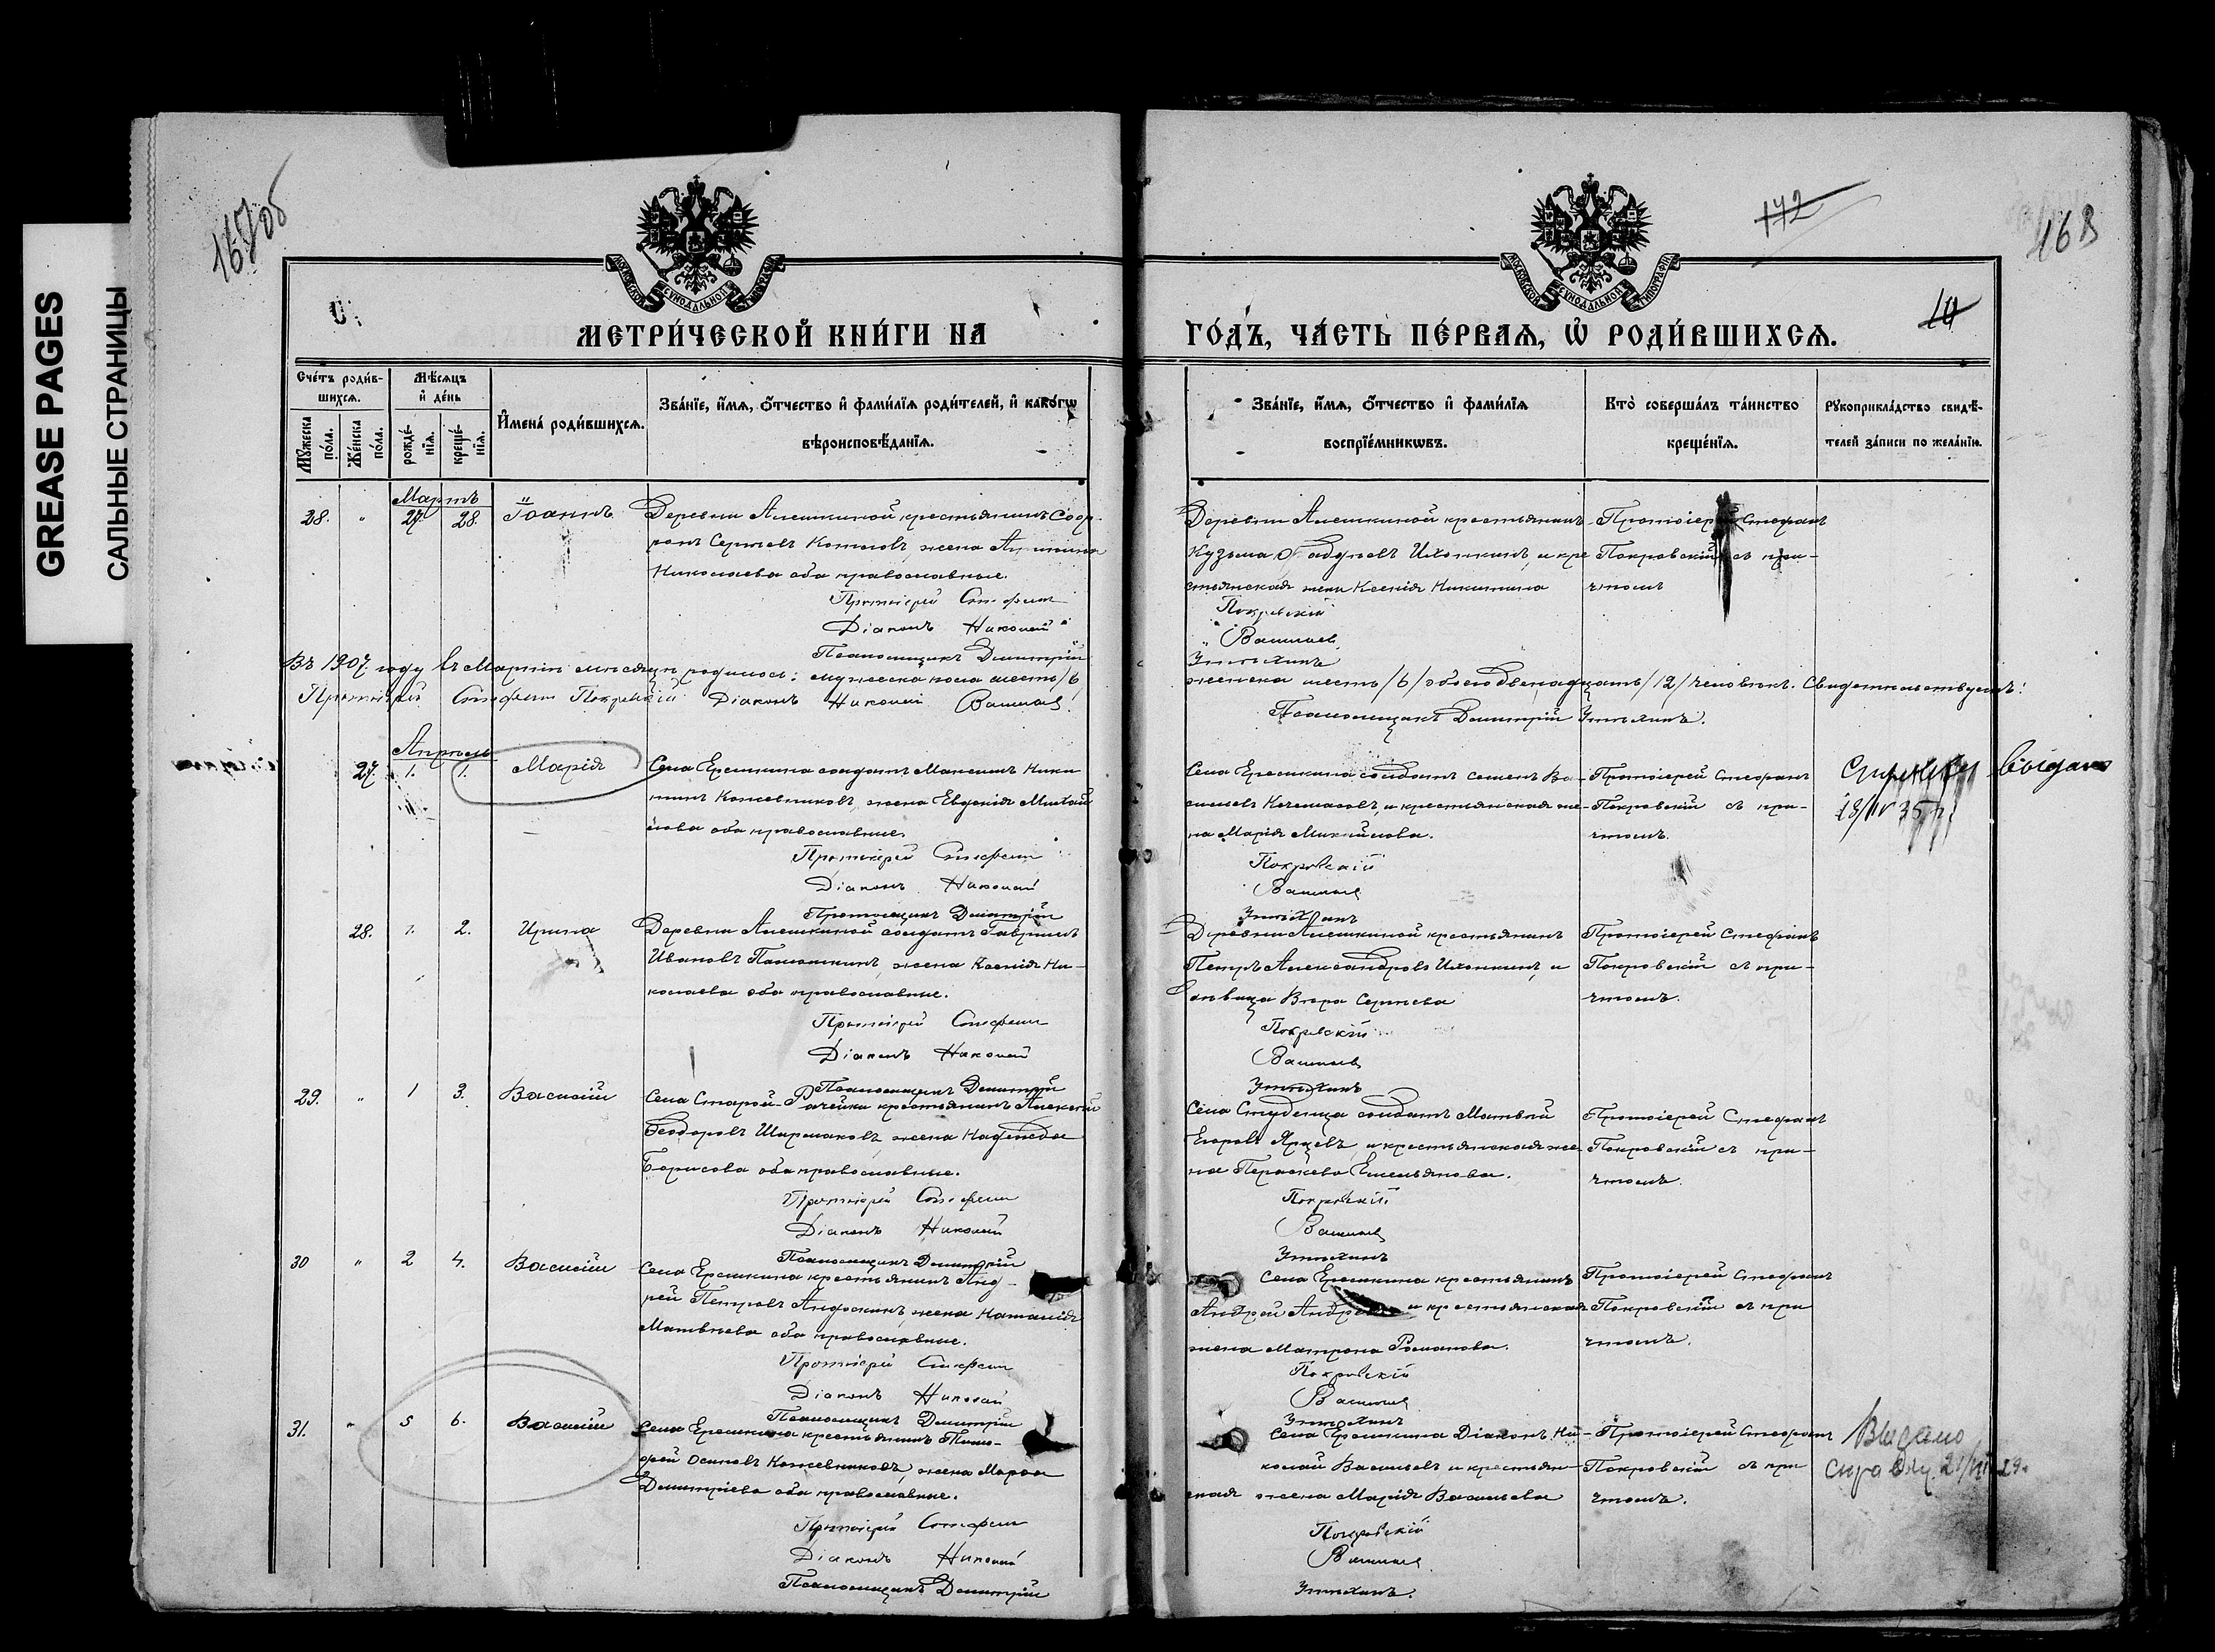 GREASE PAGES
САЛЬНЫЕ СТРАНИЦЫ
167об
172
168
10
МОСКОВСКОЙ СѴНОДАЛЬНОЙ ТИПОГРАФІИ
МОСКОВСКОЙ СѴНОДАЛЬНОЙ ТИПОГРАФІИ
МЕТРИ́ЧЕСКОЙ КНИ́ГИ НА
ГО́ДЪ, ЧА́СТЬ ПЕ́РВАѦ, Ѡ҆ РОДИ́ВШИХСѦ.
Сче́тъ роди́в-
шихсѧ.
Мѣ́сѧцъ
и҆ де́нь
И҆мена̀ роди́вшихсѧ.
Зва́нїе, и҆́мѧ, ѻ҆́тчество и҆ фами́лїѧ роди́телей, и҆ како́гѡ
вѣроисповѣ́данїѧ.
Мꙋ́жеска по́ла.
Же́нска по́ла.
рожде́нїѧ.
креще́нїѧ.
Зва́нїе, и҆́мѧ, ѻ҆́тчество и҆ фами́лїѧ
воспрїе́мникѡвъ.
Кто̀ соверша́лъ та́инство
креще́нїѧ.
Рꙋкоприкла́дство свидѣ́-
телей за́писи по жела́нїю.
Мартъ
28. " 27. 28. Іоаннъ
Деревни Алешкиной крестьянинъ Соф-
ронъ Сергѣевъ жена
Николаева оба православные.
Протоіерей Стефанъ
Діаконъ Николай
Псаломщикъ Димитрій
Деревни Алешкиной крестьянинъ
Кузьма и кре
стьянская жена Ксенія Никитина
Покровскій
Васильевъ
Утѣхинъ
Протоіерей Стефанъ
Покровскій съ при-
чтомъ
Въ 1907 году въ Мартѣ мѣсяцѣ родилось: мужеска пола шесть /6/
женска шесть /6/ обоего двенадцать /12/ человѣкъ. Свидетельствуемъ:
Протоіерей Стефанъ Покровскій Діаконъ Николай Васильевъ
Псаломщикъ Димитрій Утѣхинъ.
Апрѣль
27. 1. 1. Марія
Села Еремкина солдатъ Максимъ Ники
тинъ Кожевниковъ, жена Евдокія Михай
лова оба православные.
Протоіерей Стефанъ
Діаконъ Николай
Псаломщикъ Димитрій
Села Еремкина солдатъ Семенъ Ва-
сильевъ и крестьянская же-
на Марія Михайлова.
Покровскій
Васильевъ
Утѣхинъ
Протоіерей Стефанъ
Покровскій съ при-
чтомъ.
Выдано
35 г.
28. 1. 2. Ирина
Деревни Алешкиной солдатъ Гавріилъ
Ивановъ жена Ксенія Ни-
колаева оба православные.
Протоіерей Стефанъ
Діаконъ Николай
Псаломщикъ Димитрій
Деревни Алешкиной крестьянинъ
Петръ Александровъ и
дѣвица Вѣра Сергѣева
Покровскій
Васильевъ
Утѣхинъ
Протоіерей Стефанъ
Покровскій съ при-
чтомъ.
29. " 1 3. Василій
Села Старой-Рачейки крестьянинъ Алексѣй
Ѳеодоровъ Шармаковъ, жена Надежда
Борисова оба православные.
Протоіерей Стефанъ
Діаконъ Николай
Псаломщикъ Димитрій
Села Студенца солдатъ Матвѣй
Егоровъ Ярцевъ, и крестьянская же-
на Параскева Емельянова.
Покровскій
Васильевъ
Утѣхинъ
Протоіерей Стефанъ
Покровскій съ при-
чтомъ.
30 " 2 4. Василій
Села Еремкина крестьянинъ Анд-
рей Петровъ Андрскинъ, жена Наталія
Матвѣева оба православные.
Протоіерей Стефанъ
Діаконъ Николай
Псаломщикъ Димитрій
Села Еремкина крестьянинъ
Андрей и крестьянская
жена Матрона Романова.
Покровскій
Васильевъ
Утѣхинъ
Протоіерей Стефанъ
Покровскій съ при
чтомъ.
31. " 5 6. Василій
Села Еремкина крестьянинъ Тимо-
фей Осиповъ Кожевниковъ, жена Марѳа
Димитріева оба православные.
Протоіерей Стефанъ
Діаконъ Николай
Псаломщикъ Димитрій
Села Еремкина Діаконъ Ни-
колай Васильевъ и крестьян-
ская жена Марія Васильева
Покровскій
Васильевъ
Утѣхинъ.
Протоіерей Стефанъ
Покровскій съ при
чтомъ.
Выдано
справку 29.